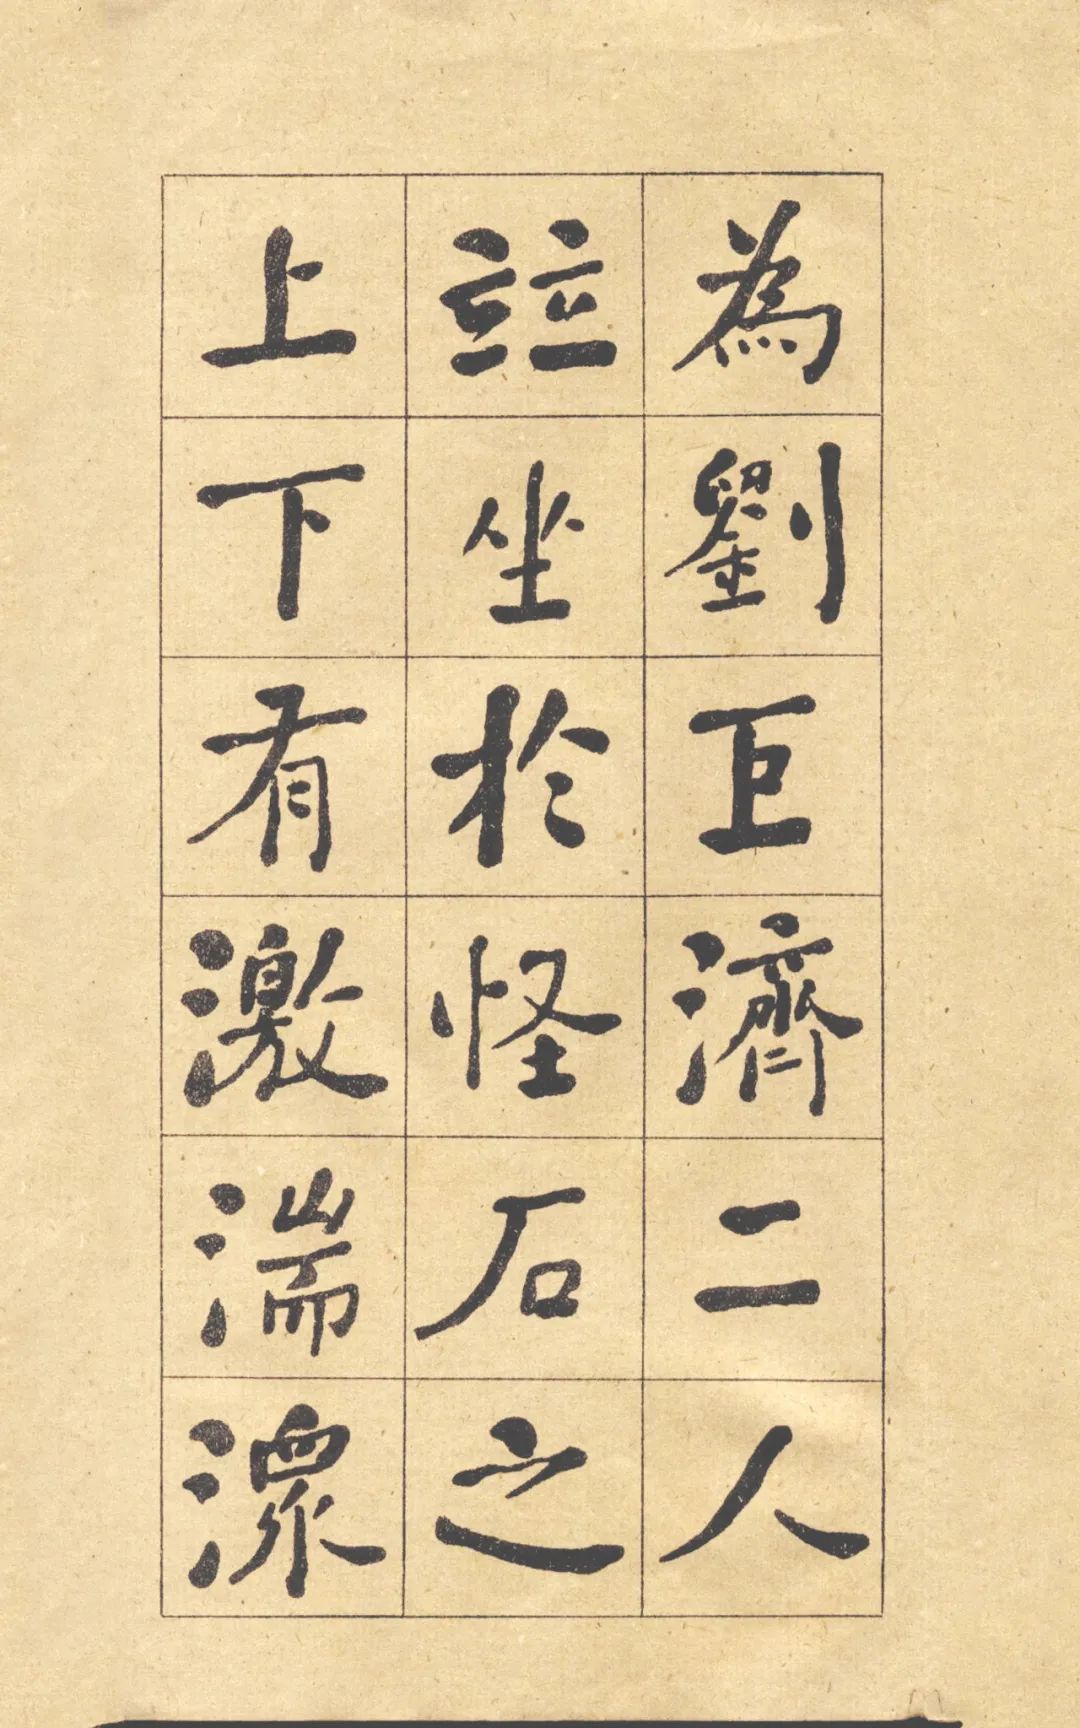 為劉巨濟二人
竝坐於怪石之
上下有激湍潨